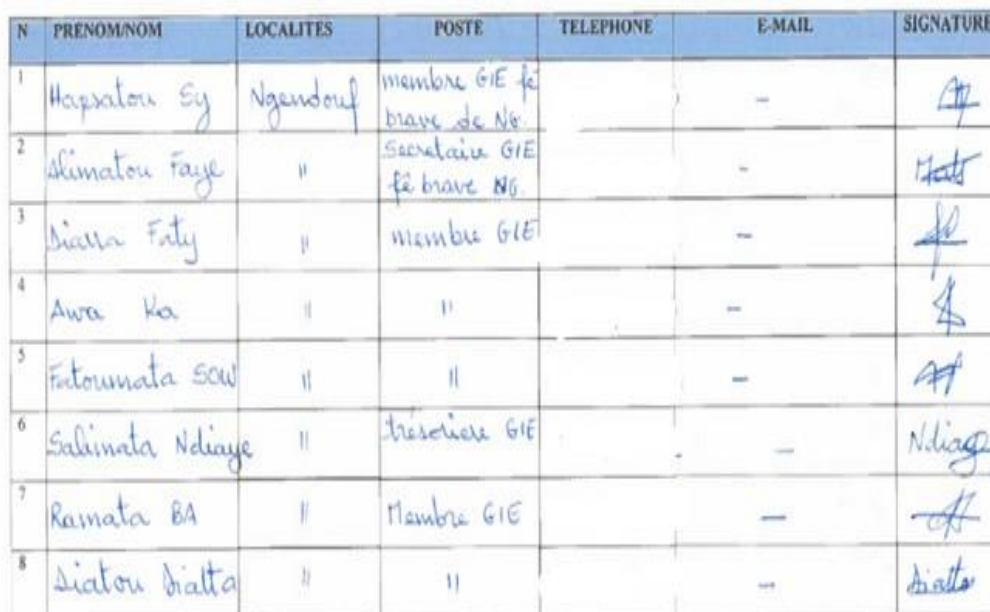 N PRENOM/NOM LOCALITES POSTE TELEPHONE E-MAIL SIGNATURE
1 Hapsatou Sy Ngendouf membre GIE fê brave de NG. -
2 Alimatou Faye " Secretaire GIE fê brave NG. -
3 Diarra Faty " membre GIE -
4 Awa Ka " " -
5 Fatoumata SOW " " -
6 Salimata Ndiaye " trésoriere GIE - Ndiaye
7 Ramata BA " Membre GIE -
8 Diatou Diatta " " - Diatta